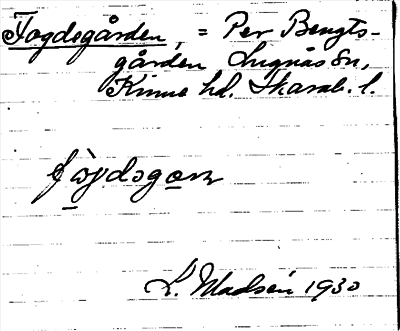 Fogdegården, = Per Bengts-
gården Lugnås sn,
Kinne hd. Skarab. l.
fò̲gdsgo̲ɐn
L. Madsén 1930